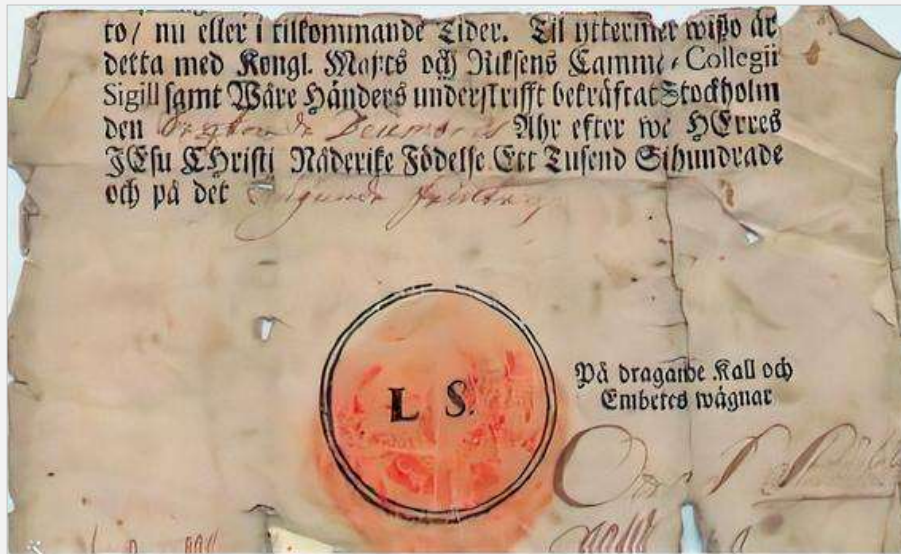 to/ nu eller i tilkommande Tider. Til yttermer wißo är
detta med Kongl. Maj:ts och Riksens Cammer-Collegii
Sigill samt Wåre Händers underskrifft bekräftat Stockholm
den Decembris Ahr efter we HErres
JEsu CHristi Nåderike Födelse Ett Tusend Sihundrade
och på det
L S.
På dragande Kall och
Embetes wägnar